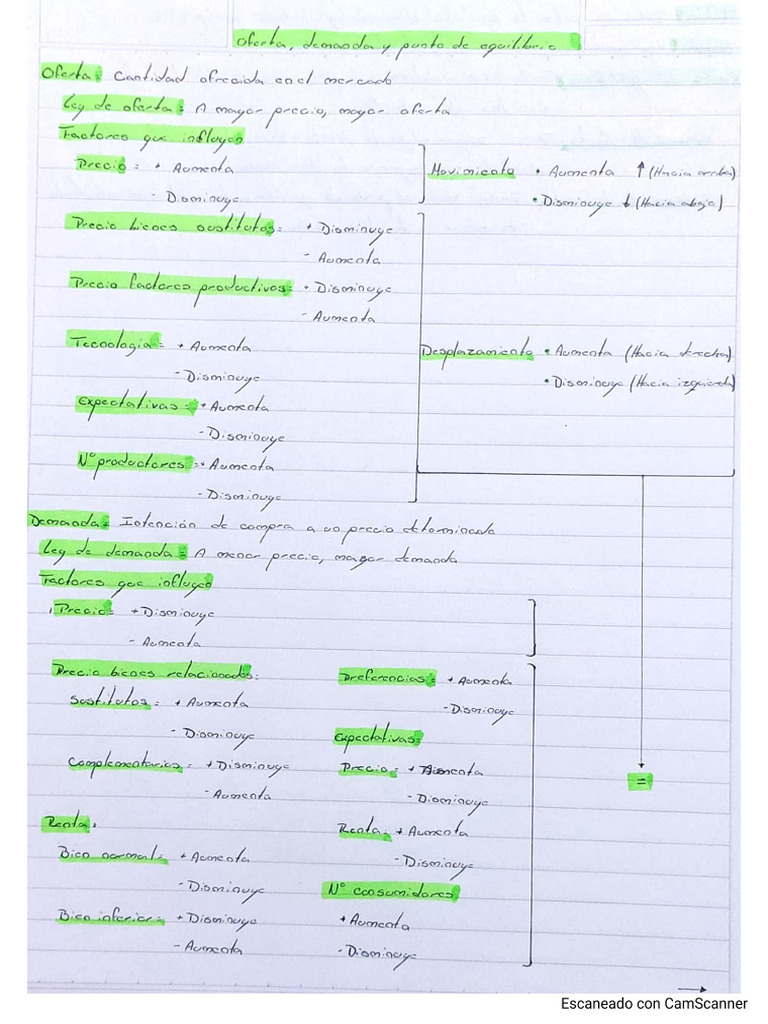 Oferta, demanda y punto de equilibrio
Oferta: Cantidad ofrecida en el mercado
Ley de oferta: A mayor precio, mayor oferta
Factores que influyen
Precio: + Aumenta
- Disminuye
Movimiento • Aumenta ↑ (Hacia arriba)
• Disminuye ↓ (Hacia abajo)
Precio bienes sustitutos: + Disminuye
- Aumenta
Precio factores productivos: + Disminuye
- Aumenta
Tecnología: + Aumenta
- Disminuye
Desplazamiento • Aumenta (Hacia derecha)
• Disminuye (Hacia izquierda)
Expectativas: + Aumenta
- Disminuye
Nº productores: + Aumenta
- Disminuye
Demanda: Intención de compra a un precio determinado
Ley de demanda: A menor precio, mayor demanda
Factores que influyen
Precio: + Disminuye
- Aumenta
Precio bienes relacionados:
Sustitutos: + Aumenta
- Disminuye
Complementarios: + Disminuye
- Aumenta
Renta:
Bien normal: + Aumenta
- Disminuye
Bien inferior: + Disminuye
- Aumenta
Preferencias: + Aumenta
- Disminuye
Expectativas:
Precio: + Aumenta
- Disminuye
Renta: + Aumenta
- Disminuye
Nº consumidores
+ Aumenta
- Disminuye
=
→
Escaneado con CamScanner